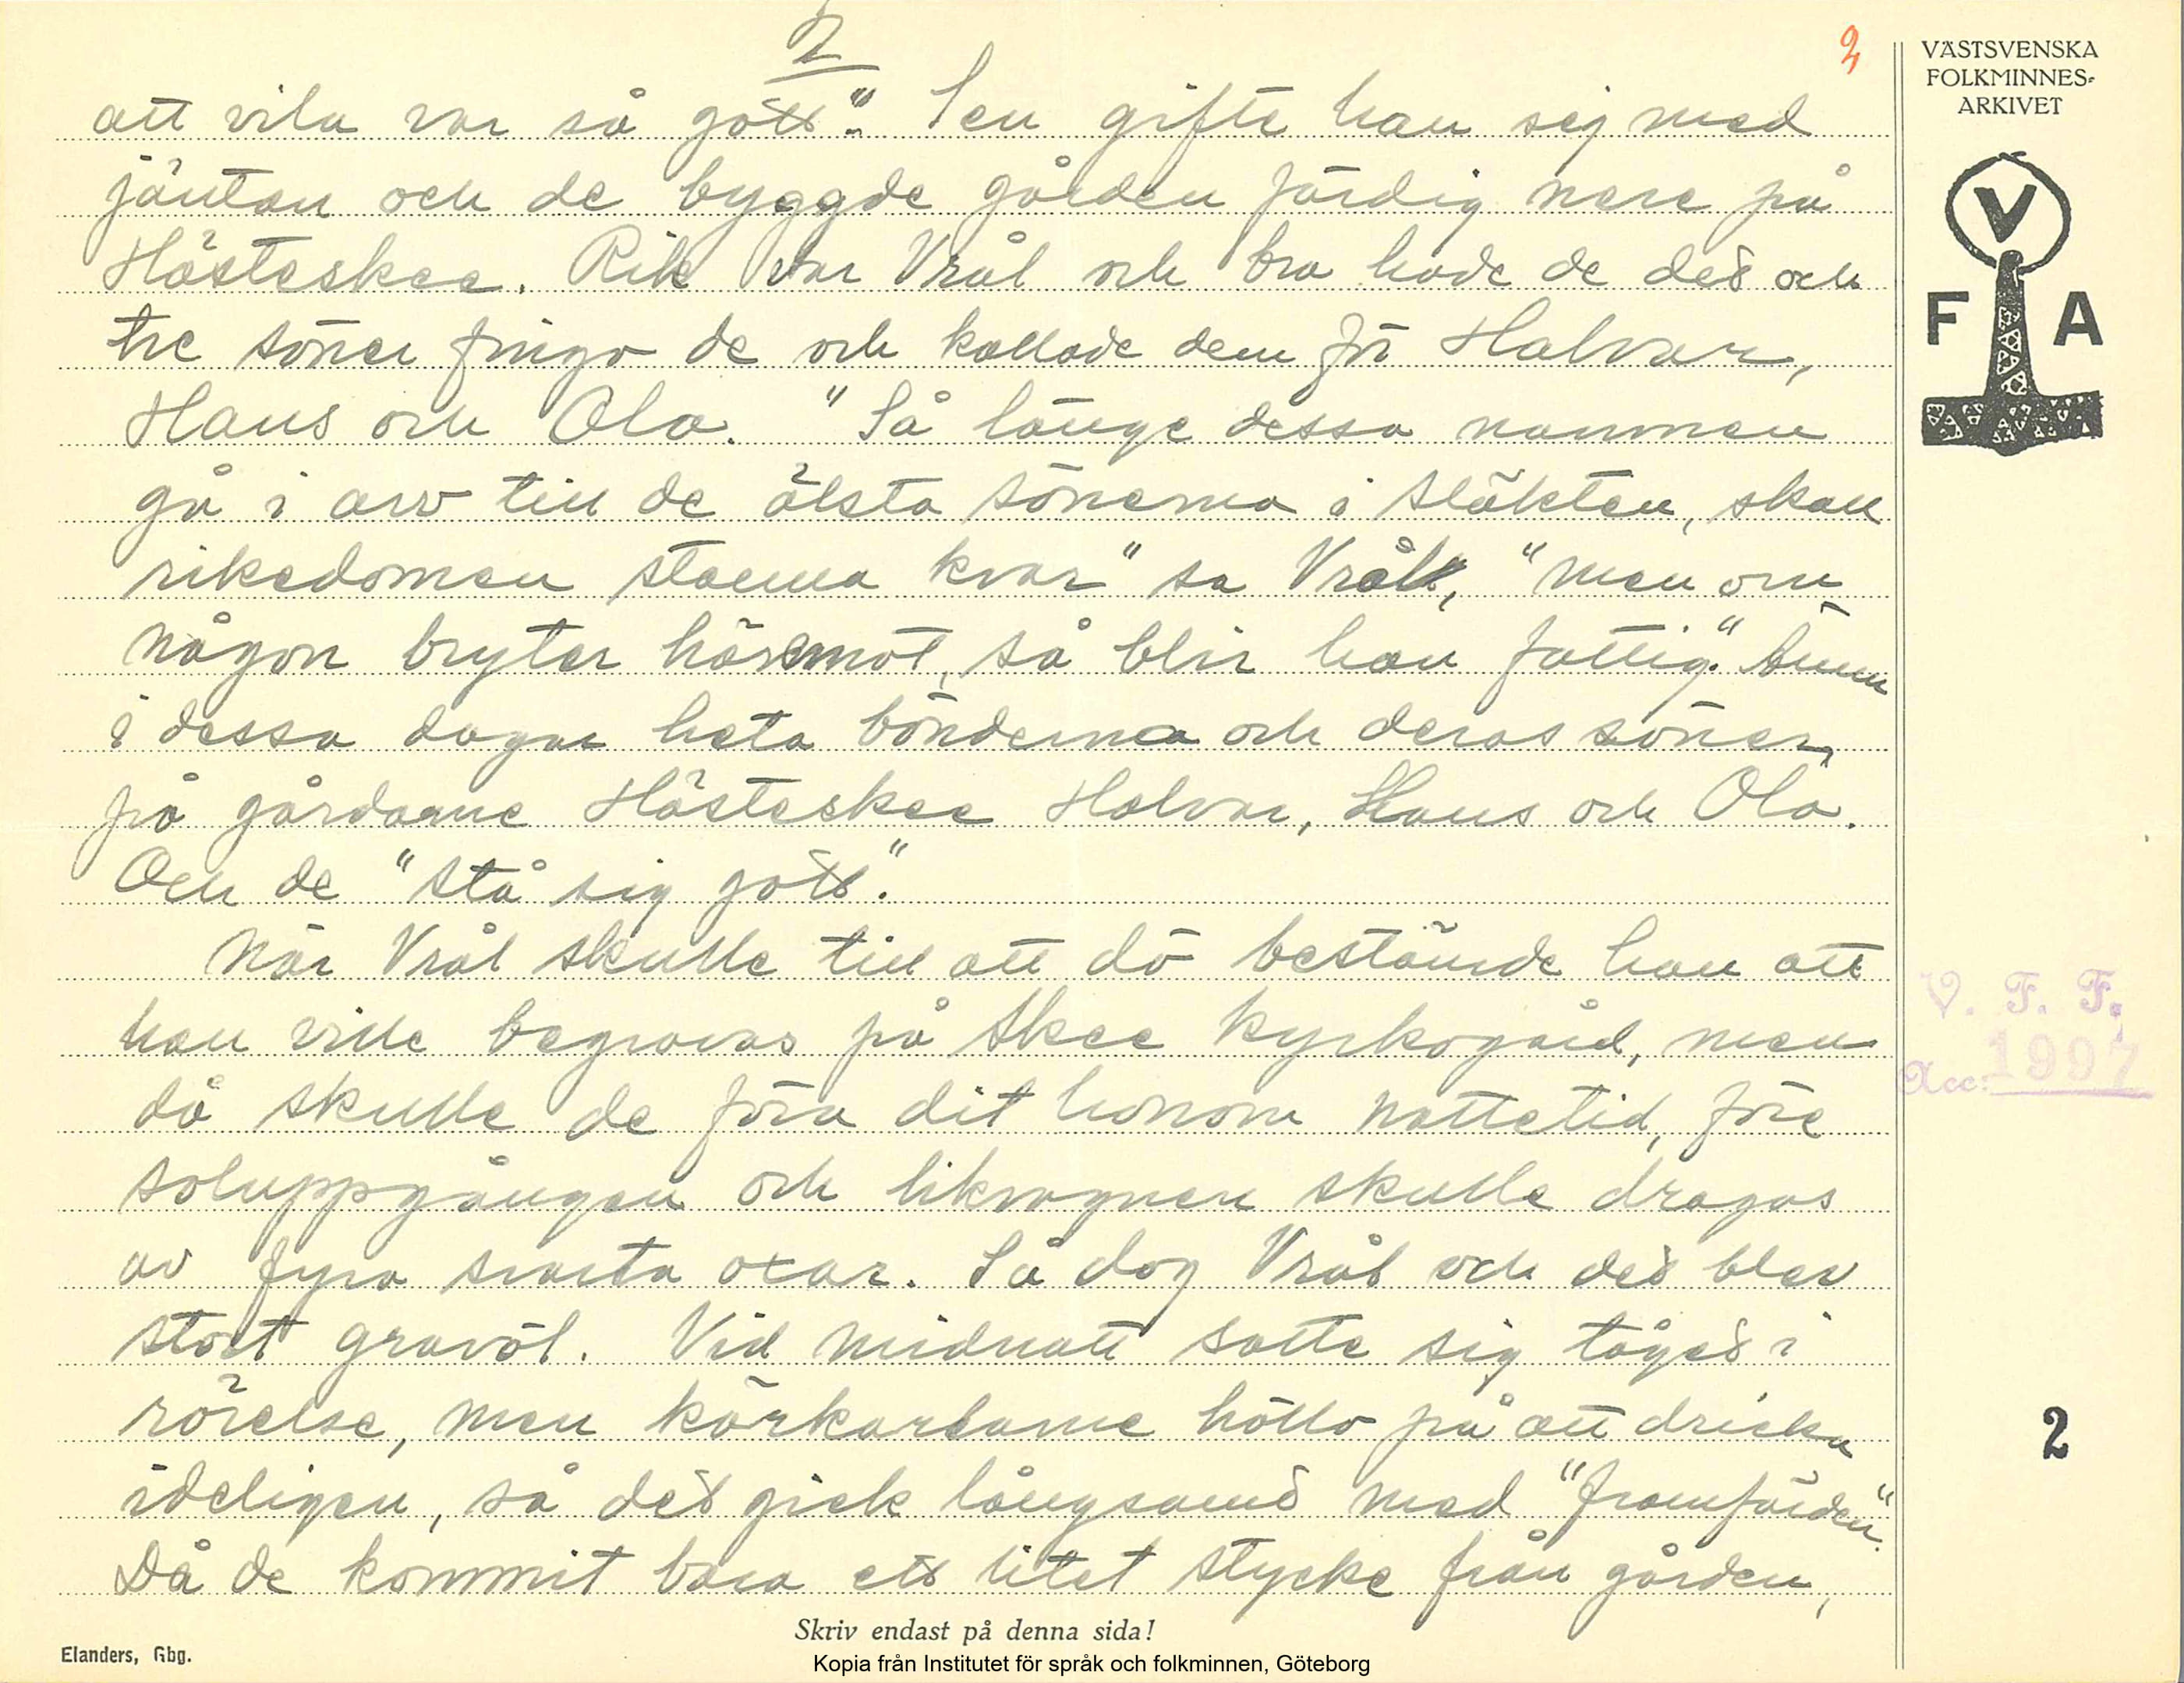 2
2
VÄSTSVENSKA
FOLKMINNES-
ARKIVET
V
F A
att vila var så gott". Sen gifte han sej med
jäntan och de byggde gården färdig nere på
Hästeskee. Rik var Vrål och bra hade de det och
tre söner fingo de och kallade dem för Halvar,
Hans och Ola. "Så länge dessa namnen
gå i arv till de älsta sönerna i släkten, skall
rikedomen stanna kvar" sa Vrål, "men om
någon bryter häremot, så blir han fattig". Ännu
i dessa dagar heta bönderna och deras söner,
på gårdarne Hästeskee Halvar, Hans och Ola.
Och de "stå sig gott".
När Vrål skulle till att dö bestämde han att
han ville begravas på Skee kyrkogård, men
då skulle de föra dit honom nattetid, före
soluppgången och likvagnen skulle dragas
av fyra svarta oxar. Så dog Vrål och det blev
stort gravöl. Vid midnatt satte sig tåget i
rörelse, men körkarlarne höllo på att dricka
ideligen, så det gick långsamt med "framfärden".
Då de kommit bara ett litet stycke från gården,
V. F. F.
Acc: 1997
2
Skriv endast på denna sida!
Elanders, Gbg.
Kopia från Institutet för språk och folkminnen, Göteborg